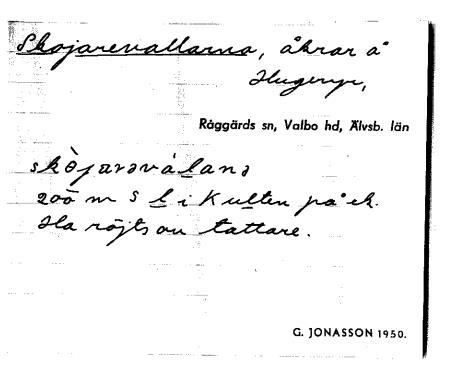 Skojarevallarna, åkrar å
Hugeryr,
Råggärds sn, Valbo hd, Älvsb. län
skòjarəvàlanə
200 m S l i Kulten på ek.
Ha röjts av tattare.
G. JONASSON 1950.